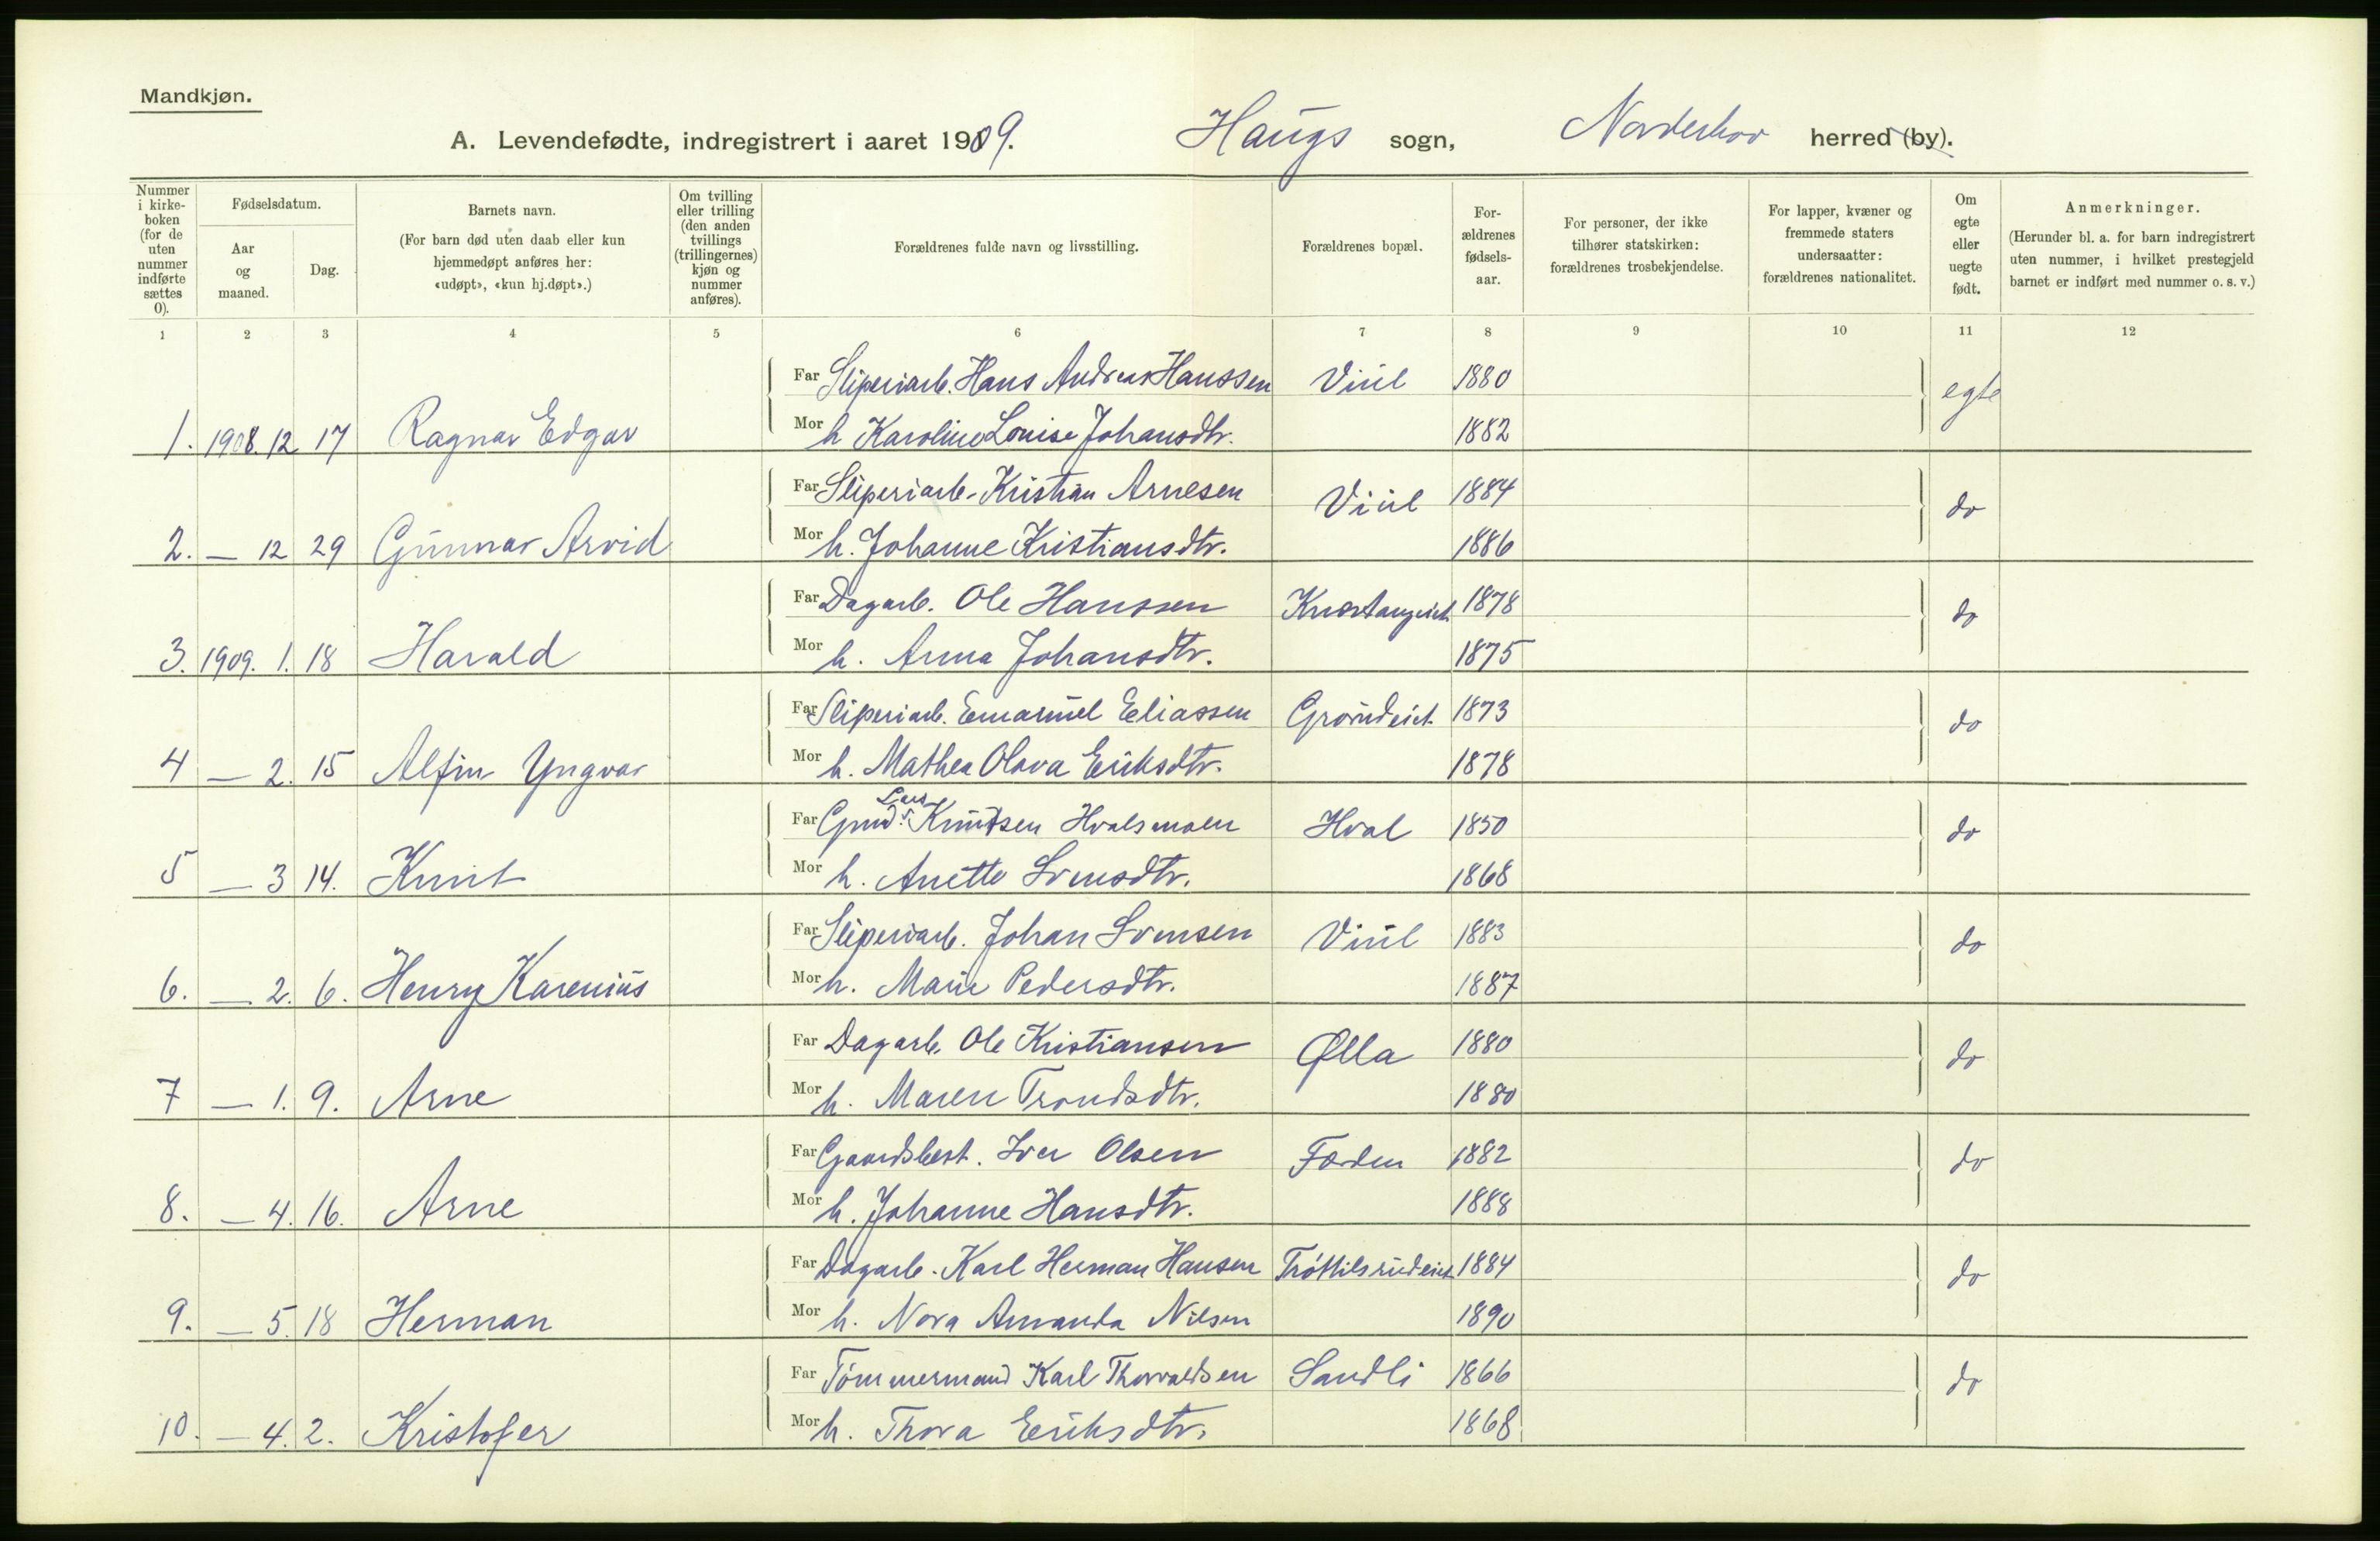 Mandkjøn.
A. Levendefødte, indregistrert i aaret 1909. Haugs sogn, Norderhov herred (by).
Nummer i kirke-boken (for de uten nummer indførte sættes 0).
Fødselsdatum.
Aar og maaned.
Dag.
Barnets navn.
(For barn død uten daab eller kun hjemmedøpt anføres her: «udøpt», «kun hj.døpt».)
Om tvilling eller trilling (den anden tvillings (trillingernes) kjøn og nummer anføres).
Forældrenes fulde navn og livsstilling.
Forældrenes bopæl.
For-ældrenes fødsels-aar.
For personer, der ikke tilhører statskirken: forældrenes trosbekjendelse.
For lapper, kvæner og fremmede staters undersaatter: forældrenes nationalitet.
Om egte eller uegte født.
Anmerkninger.
(Herunder bl. a. for barn indregistrert uten nummer, i hvilket prestegjeld barnet er indført med nummer o. s. v.)
1 2 3 4 5 6 7 8 9 10 11 12
Far Sliperiarb. Hans Andreas Hanssen Viul 1880 egte
1. 1908. 12 17 Ragnar Edgar Mor h Karoline Louise Johansdtr. 1882
Far Sliperiarb. Kristian Arnesen Viul 1884 do
2. — 12 29 Gunnar Arvid Mor h. Johanne Kristiansdtr. 1886
Far Dagarb. Ole Hanssen Knestangeiet 1878 do
3. 1909. 1. 18 Harald Mor h. Anna Johansdtr. 1875
Far Sliperiarb. Emanuel Eliassen 1873 do
4 — 2. 15 Alfin Yngvar Mor h. Mathea Olava Eriksdtr. 1878
Far Grmd. Lars Knudsen Hvalsmoen Hval 1850 do
5 — 3 14. Knut Mor h. Anette Svensdtr. 1868
Far Sliperiarb. Johan Svensen Viul 1883 do
6. — 2. 6. Henry Karenius Mor h. Marie Pedersdtr. 1887
Far Dagarb. Ole Kristiansen Ølla 1880 do
7 — 1. 9. Arne Mor h. Maren Trondsdtr. 1880
Far Gaardsbest. Iver Olsen Færden 1882 do
8. — 4. 16. Arne Mor h. Johanne Hansdtr. 1888
Far Dagarb. Karl Herman Hansen Trøttilsrudeiet 1884 do
9. — 5. 18 Herman Mor h. Nora Amanda Nilsen 1890
Far Tømmermand Karl Thorvaldsen Sandli 1866 do
10. — 4. 2. Kristofer Mor h. Thora Eriksdtr. 1868